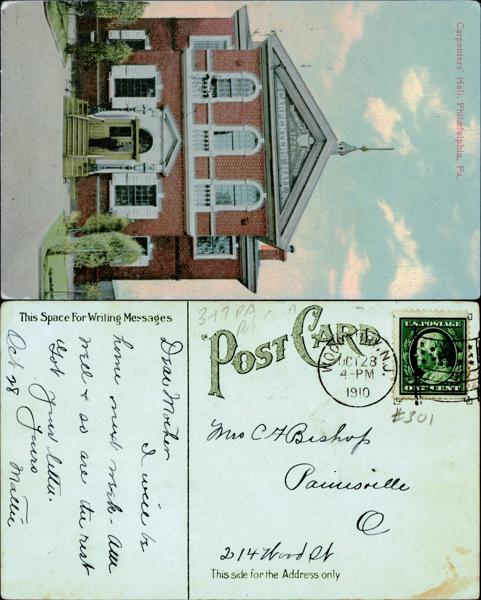 Carpenters' Hall, Philadelphia, Pa.
CARPENTERS' HALL
This Space For Writing Messages
Dear Mother
I will be
home next week - am
well & so are the rest
Got your letter.
Yours
Mattie
Oct 28
POST CARD
N.J.
OCT 28
4-PM
1910
U.S. POSTAGE
ONE CENT
#301
Mrs C F Bishop
Painesville
O
214 Wood St
This side for the Address only